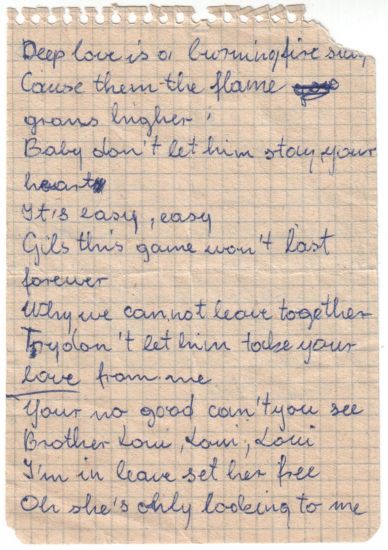 Deep love is a burning fire stay
Cause them the flame
grows higher,
Baby don't let him stay your
heart
It's easy, easy
Gils this game won't last
forever
Why we can,not leave together
Try don't let him take your
love from me
Your no good can't you see
Brother Loui, Loui, Loui
I'm in leave set her free
Oh she's only looking to me